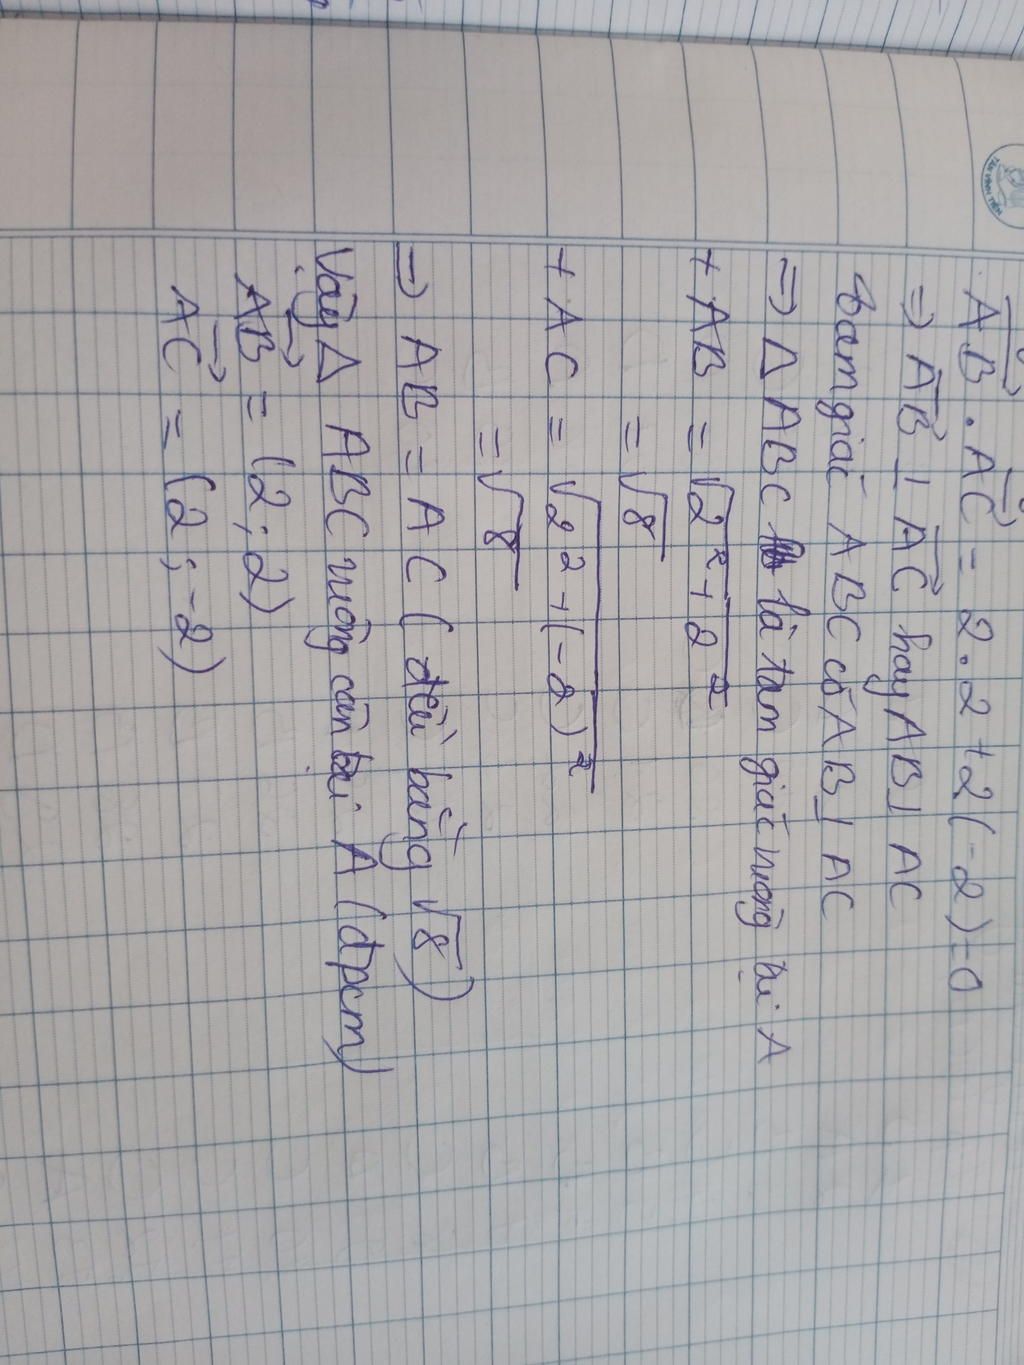 AB . AC = 2.2 + 2(-2) = 0
=> AB ⊥ AC hay AB ⊥ AC
tam giác ABC có AB ⊥ AC
=> Δ ABC là tam giác vuông tại A
+ AB = √2² + 2²
= √8
+ AC = √2² + (-2)²
= √8
=> AB = AC ( đều bằng √8 )
Vậy Δ ABC vuông cân tại A (đpcm)
AB = (2 ; 2)
AC = (2 ; -2)